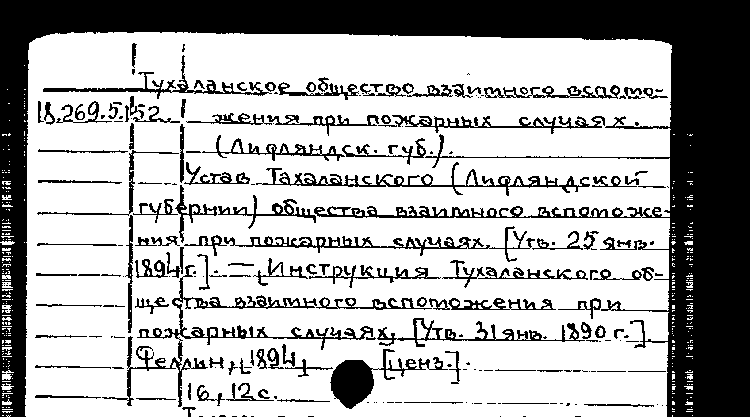 Тухаланское общество взаимного вспомо-
18.269.5.152. жения при пожарных случаях.
(Лифляндск. губ.).
Устав Тахаланского (Лифляндской
губернии) общества взаимного вспоможе-
ния при пожарных случаях. [Утв. 25 янв.
1894 г.]. — [Инструкция Тухаланского об-
щества взаимного вспоможения при
пожарных случаях, [Утв. 31 янв. 1890 г.].
Феллин, [1894] [ценз.].
16, 12 с.